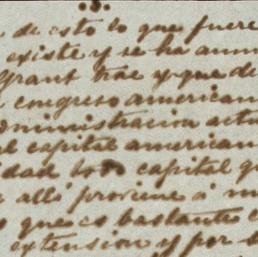 .3.
de esto lo que fuere
existe y se ha anun
Grant trae y que de
congreso american
ministracion actu
al capital american
dad todo capital q
alli proviene á m
que es bastante
extension y por s